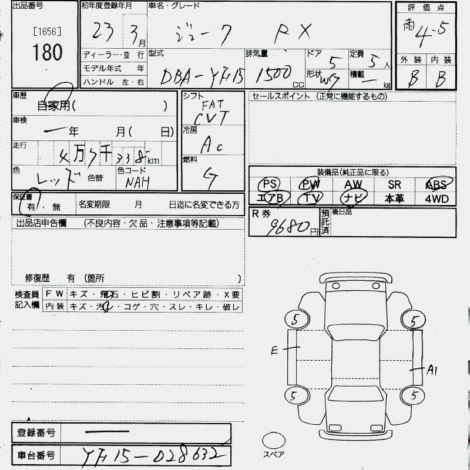 出品番号 初年度登録年月 車名・グレード 評価点
[1656] 23年 3月 ジューク RX 雨 4-5
180 ディーラー・並行 型式 排気量 ドア 定員
モデル年式 年 DBA-YF15 1500CC 5 5人 外装 内装
ハンドル 左・右 形状 W9 積載 kg B B
車歴 シフト セールスポイント (正常に機能するもの)
自家用( ) FAT
CVT
車検 冷房
一年 月( 日) AC
走行 4万7千338km 燃料
色 レッド 色替 色コード NAH G 装備品(純正品に限る)
PS PW AW SR ABS
保証書 エアB TV ナビ 本革 4WD
有・無 名変期限 月 日迄に名変できる方 R券 9680円 預託済 後日品
出品店申告欄 (不良内容・欠品・注意事項等記載)
修復歴 有 (箇所 )
検査員記入欄 FW キズ・飛石・ヒビ割・リペア跡・X要
内装 キズ・汚レ・コゲ・穴・スレ・キレ・破レ
5 5
E A1
5 5
登録番号 —
車台番号 YF15-028632
スペア